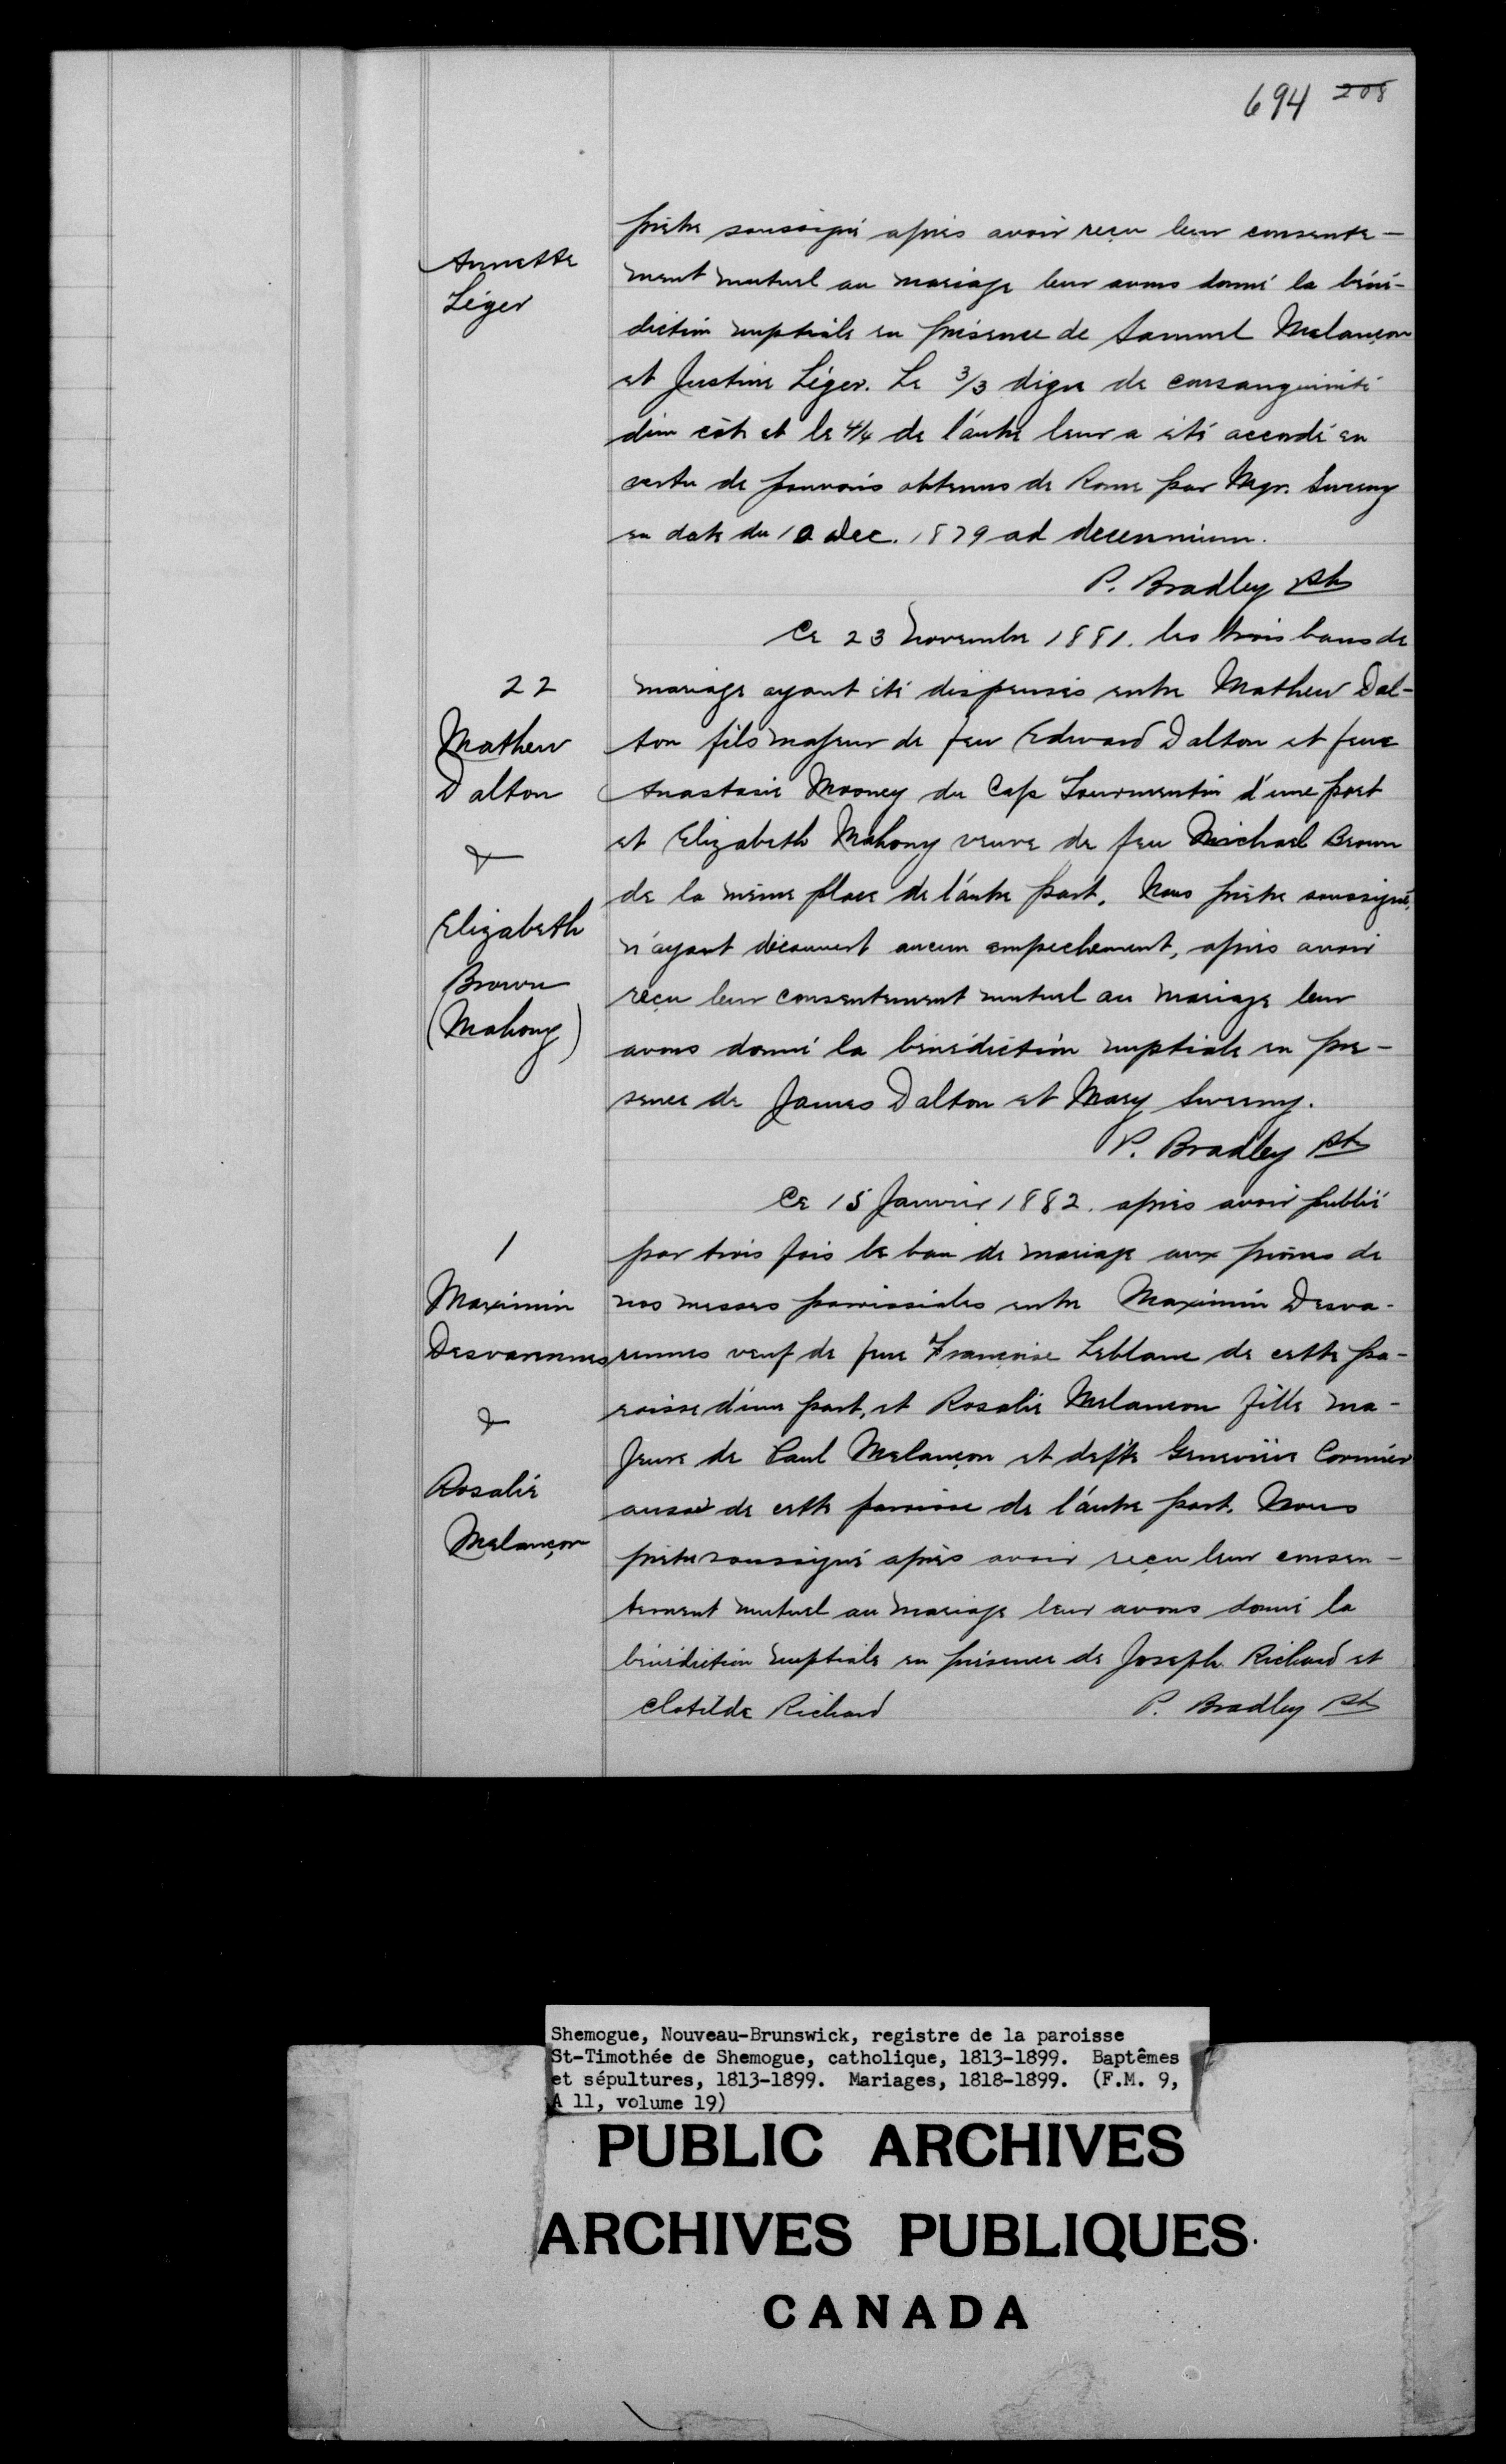 694 208
Annette
Léger
prêtre soussigné après avoir reçu leur consente-
ment mutuel au mariage leur avons donné la béné-
diction nuptiale en présence de Samuel Melançon
et Justine Léger. Le 3/3 digré de consanguinité
d'un côté et le 4/4 de l'autre leur a été accordé en
vertu de pouvoirs obtenus de Rome par Mgr. Sweeny
en date du 10 Dec. 1879 ad decennium.
P. Bradley Ptr
22
Mathew
Dalton
&
Elizabeth
Brown
(Mahony)
Ce 23 Novembre 1881. les trois bans de
mariage ayant été dispensés entre Mathew Dal-
ton fils majeur de feu Edward Dalton et feue
Anastasie Mooney du Cap Tourmentin d'une part
et Elizabeth Mahony veuve de feu Michael Brown
de la même place de l'autre part. Nous prêtre soussigné,
n'ayant découvert aucun empechement, après avoir
reçu leur consentement mutuel au mariage leur
avons donné la bénédiction nuptiale en pre-
sence de James Dalton et Mary Sweeny.
P. Bradley Ptr
1
Maximin
Desvarennes
&
Rosalie
Melançon
Ce 15 Janvier 1882. après avoir publié
par trois fois le ban de mariage aux prônes de
nos messes paroissiales entre Maximin Desva-
rennes veuf de feue Françoise Leblanc de cette pa-
roisse d'une part, et Rosalie Melancon fille ma-
jeure de Paul Melançon et defte Geneviève Cormier
aussi de cette paroisse de l'autre part. Nous
prêtre soussigné après avoir reçu leur consen-
tement mutuel au mariage leur avons donné la
bénédiction nuptiale en présence de Joseph Richard et
Clotilde Richard P. Bradley Ptr
Shemogue, Nouveau-Brunswick, registre de la paroisse
St-Timothée de Shemogue, catholique, 1813-1899. Baptêmes
et sépultures, 1813-1899. Mariages, 1818-1899. (F.M. 9,
A 11, volume 19)
PUBLIC ARCHIVES
ARCHIVES PUBLIQUES
CANADA